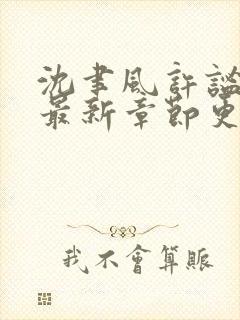 沈聿風許謐
最新章節更
我不會算賬